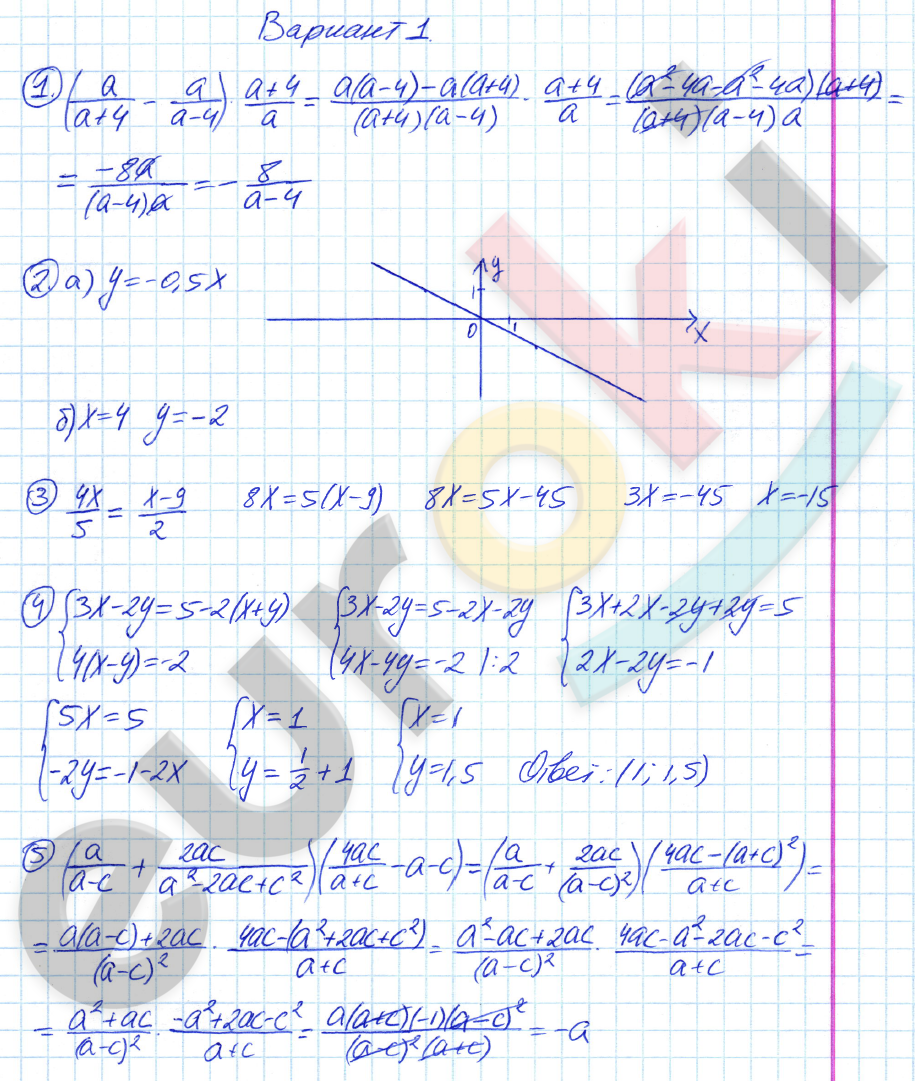 Вариант 1.
1. (a/(a+4) - a/(a-4)) · (a+4)/a = (a(a-4)-a(a+4))/((a+4)(a-4)) · (a+4)/a = ((a²-4a-a²-4a)(a+4))/((a+4)(a-4)a) =
= (-8a)/((a-4)a) = - 8/(a-4)
2. а) y=-0,5x
y
1
0 1 x
б) x=4 y=-2
3 4x/5 = (x-9)/2 8x=5(x-9) 8x=5x-45 3x=-45 x=-15
4 {3x-2y=5-2(x+y) {3x-2y=5-2x-2y {3x+2x-2y+2y=5
4(x-y)=-2 4x-4y=-2 |:2 2x-2y=-1
{5x=5 {x=1 {x=1
-2y=-1-2x y=1/2+1 y=1,5 Ответ: (1; 1,5)
5 (a/(a-c) + 2ac/(a²-2ac+c²))(4ac/(a+c) -a-c) = (a/(a-c) + 2ac/(a-c)²)((4ac-(a+c)²)/(a+c)) =
= (a(a-c)+2ac)/(a-c)² · (4ac-(a²+2ac+c²))/(a+c) = (a²-ac+2ac)/(a-c)² · (4ac-a²-2ac-c²)/(a+c) =
= (a²+ac)/(a-c)² · (-a²+2ac-c²)/(a+c) = (a(a+c)(-1)(a-c)²)/((a-c)²(a+c)) = -a
euroki